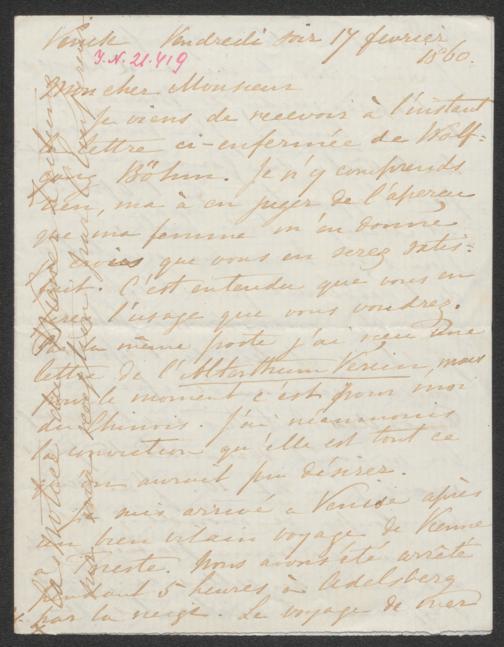 Venise Vendredi soir 17 fevrier
J.N. 21.419
1860.
Mon cher Monsieur
Je viens de recevoir à l'instant
lettre ci-enfermée de Wolf-
gang Böhm. Je n'y comprends
rien, mais à en juger de l'aperçu
que ma femme m'en donne
je crois que vous en serez satis-
fait. C'est entendu que vous en
ferez l'usage que vous voudrez.
Par la même poste j'ai reçu une
lettre de l'Alterthum Verein, mais
pour le moment c'est pour moi
du Chinois. J'ai néanmoins
la conviction qu'elle est tout ce
qu'on aurait pu désirer.
Je suis arrivé a Venise après
un bien vilain voyage de Vienne
a Trieste. Nous avons été arrêté
pendant 5 heures à Adelsberg
par la neige. Le voyage de mer